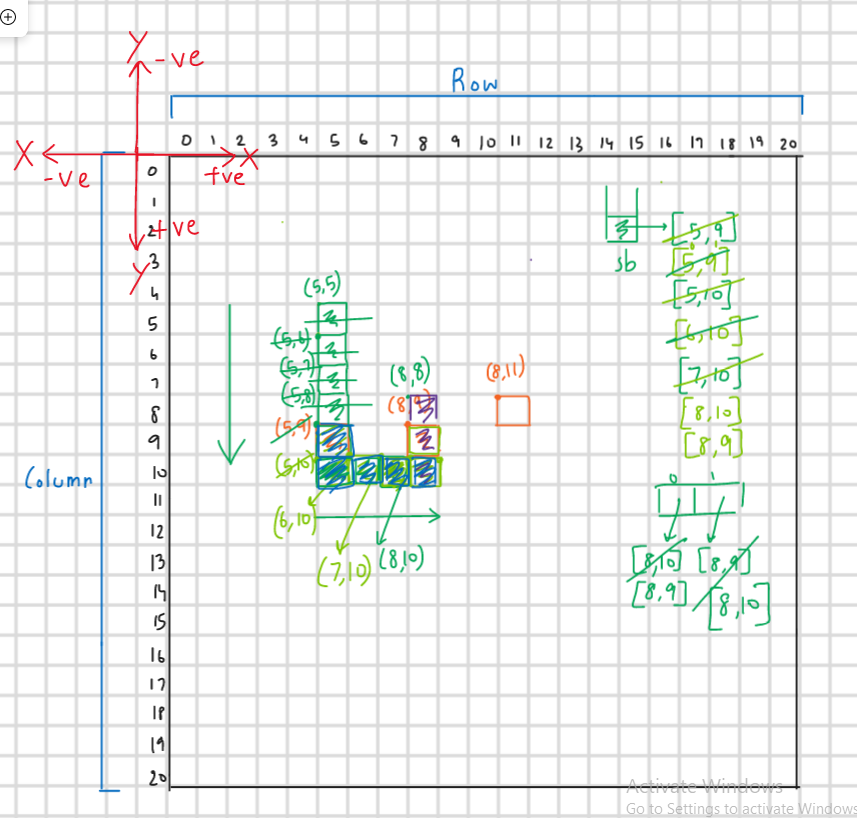 Y
-ve
Row
0 1 2 3 4 5 6 7 8 9 10 11 12 13 14 15 16 17 18 19 20
X
X
-ve
+ve
+ve
Y
0
1
2
3
4
5
6
7
8
9
10
11
12
13
14
15
16
17
18
19
20
Column
(5,5)
(5,6)
(5,7)
(5,8)
(5,9)
(5,10)
(6,10)
(7,10)
(8,10)
(8,8)
(8,9)
(8,11)
sb
[5,9]
[5,9]
[5,10]
[6,10]
[7,10]
[8,10]
[8,9]
0 1
[8,10] [8,9]
[8,9] [8,10]
Activate Windows
Go to Settings to activate Windows